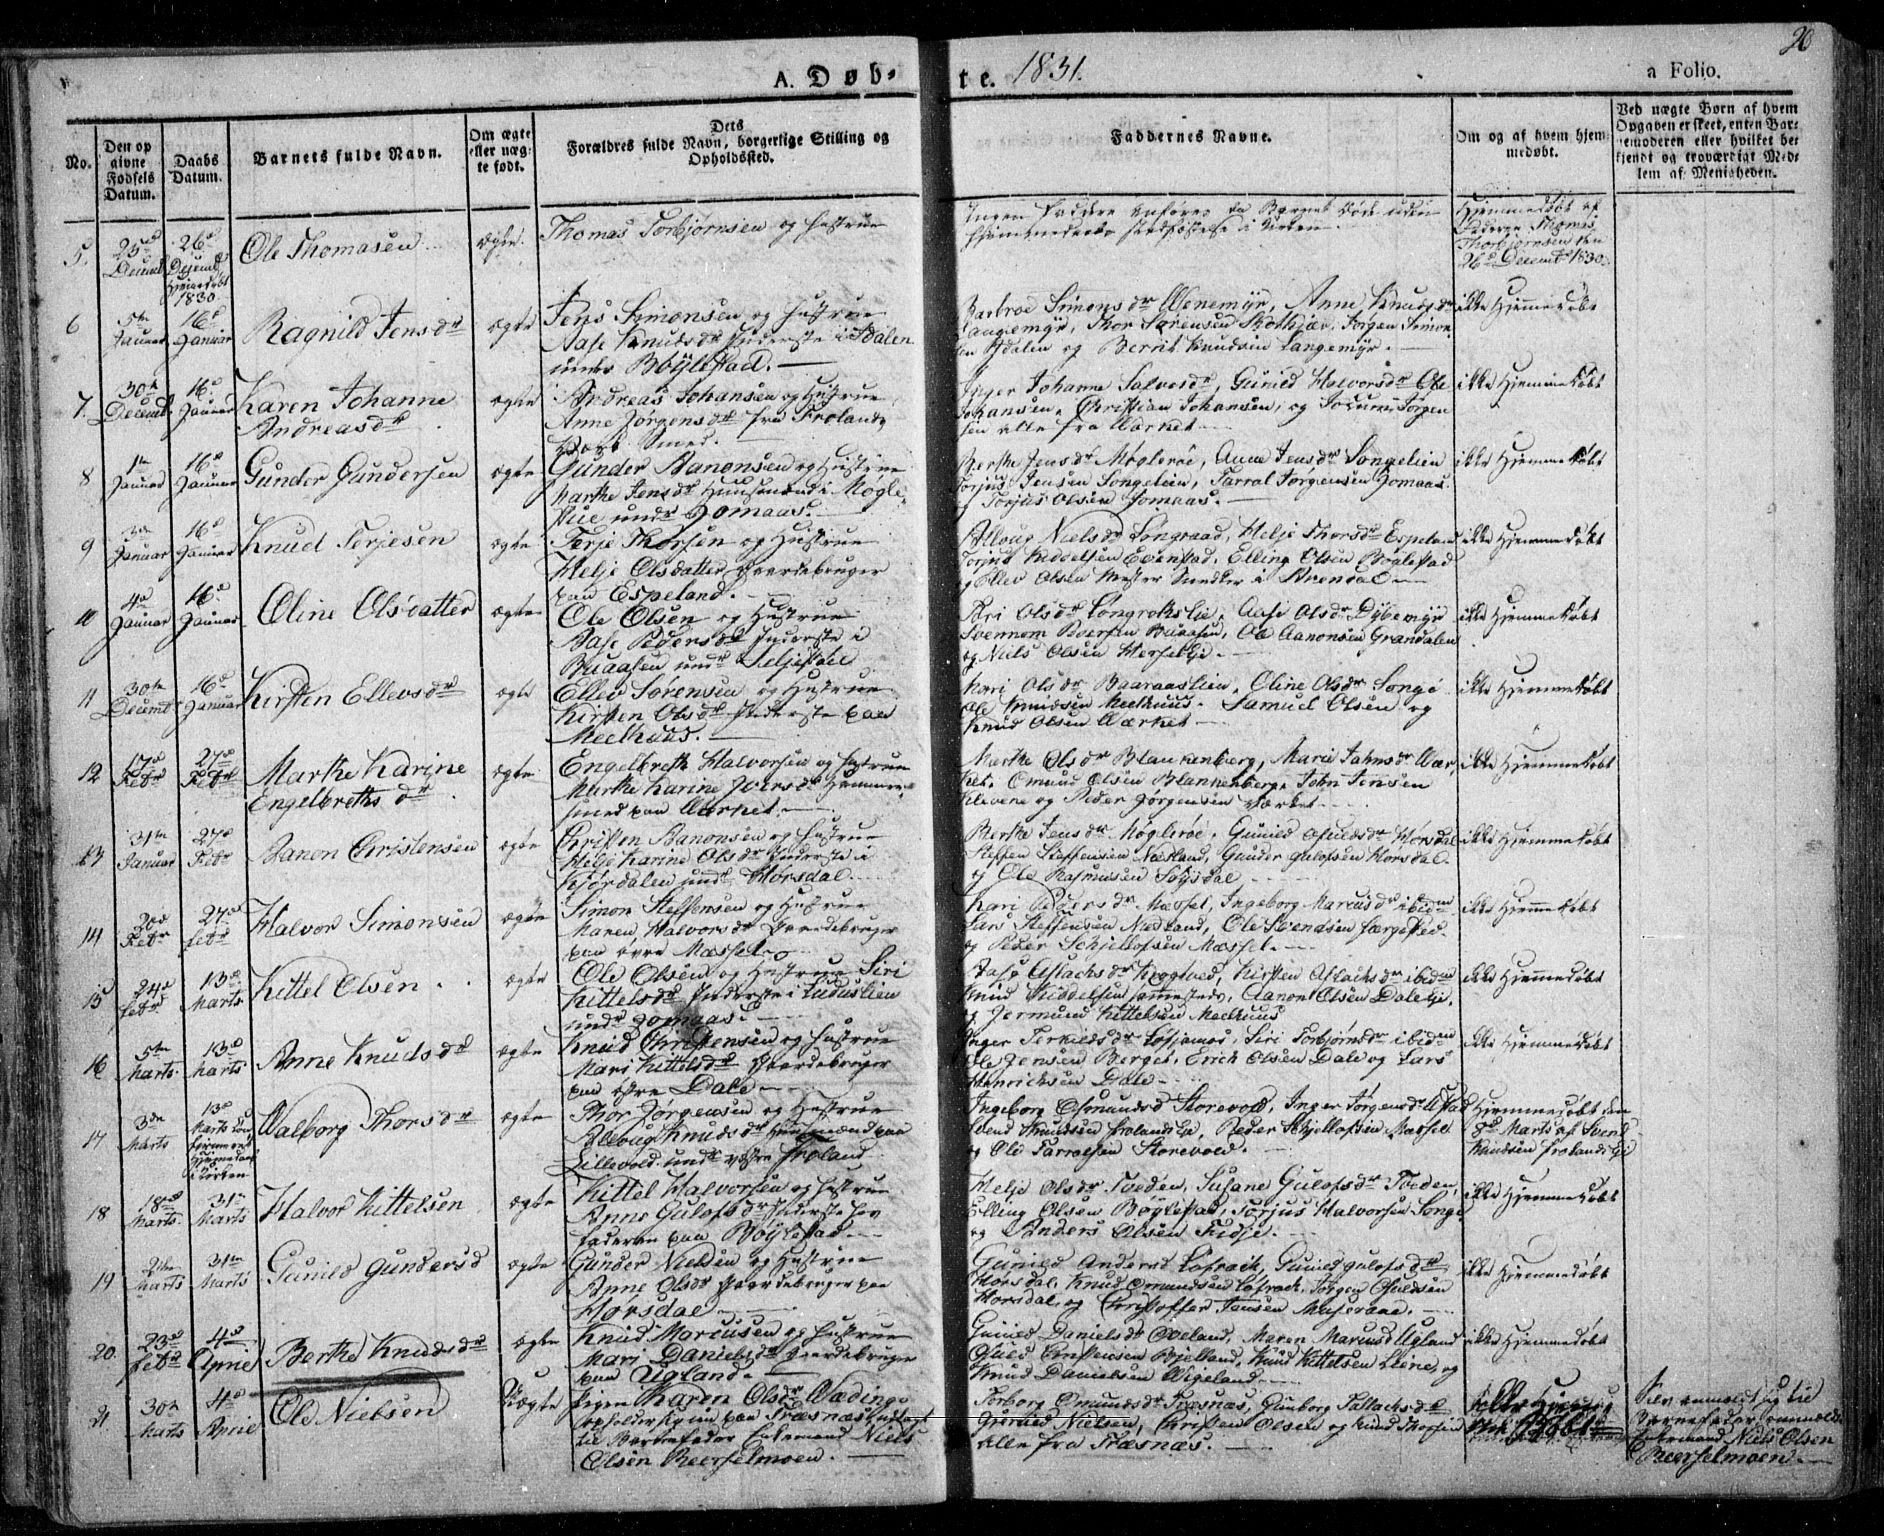 A. Døb-
te. 1831.
20
a Folio.
No.
Den op
givne
Fødsels
Datum.
Daabs
Datum.
Barnets fulde Navn.
Om ægte
eller uæg-
te født.
Dets
Forældres fulde Navn, borgerlige Stilling og
Opholdssted.
Faddernes Navne.
Om og af hvem hjem-
medøbt.
Ved uægte Børn af hvem
Opgaven er skeet, enten Bar-
nemoderen eller hvilket be-
kjendt og troværdigt Med-
lem af Menigheden.
5.
25de
Decembr
26d
1830
Ole Thomasen
ægte.
Thomas Torbjørnsen og Hustrue
Ingen Faddere anføres da Barnet døde uden
Hjemmedøbt af
Faderen Thomas
Thorbjørnsen den
26d Decembr 1830
6
5te
Januar
16d
Januar
Ragnild Jensdr
ægte
Jens Simonsen og Hustrue
Aase Knudsdr Inderste i Ådalen
under Bøylestad.
Barbroe Simonsdr Wenemyr, Anne Knudsdr
Langemyr, Thor Sørensen, Jørgen Simon
sen Ådalen og Bernt Knudsen Langemyr.
ikke Hjemmedøbt
7.
30te
Decembr
16d
Januar
Karen Johanne
Andreasdr
ægte
Andreas Johansen og Hustrue
Anne Jørgensdr fra Frolands
Værk Smed.
Inger Johanne Salvesdr, Gunild Halvorsdr Ole
Johansen, Christian Johansen, og Jørgen
sen alle fra Værket
ikke Hjemmedøbt
8
1te
Januar
16d
Januar
Gunder Gundersen
ægte
Gunder Aanonsen og Hustrue
Marthe Jensdr Huusmand i Møgle
røe undr Jomaas.
Berthe Jensdr Møglerøe, Anne Jensdr Songelien
Torjus Jensen Songelien, Tarral Jørgensen Jomaas
Torjus Olsen Jomaas.
ikke Hjemmedøbt
9
3de
Januar
16d
Januar
Knud Terjesen
ægte
Terje Thorsen og Hustrue
Helje Olsdatter Gaardebruger
paa Espeland.
Alloug Nielsdr Longraad, Helje Thorsdr Espeland
Torjus Kiddelsen Evenstad, Elling Olsen Bøylestad
og Ellev Olsen Mester Snedker i Arendal
ikke Hjemmedøbt
10
4d
Januar
16d
Januar
Oline Olsdatter
ægte
Ole Olsen og Hustrue
Aase Pedersdr Inderste i
Buaasen undr Seljestøl
Kari Olsdr Longrokslie, Aase Olsdr Dybemyr
Buaasen, Ole Aanonsen Grandalen
og Niels Olsen Herselje.
ikke Hjemmedøbt
11
30te
Decembr
16d
Januar
Kirsten Ellevsdr
ægte
Ellev Sørensen og Hustrue
Kirsten Olsdr Inderste paa
Meelhuus.
Kari Olsdr Baaraaslien, Oline Olsdr Songe
Ole Knudsen Meelhuus. Samuel Olsen og
Knud Olsen Værket
ikke Hjemmedøbt
12
17d
Febr
27d
Febr
Marthe Karine
Engelbrethsdr
ægte
Engelbreth Halvorsen og Hustrue
Marthe Karine Iversdr Hammer-
smed paa Værket.
Marthe Olsdr Blankenberg, Marie Jahnsdr Vær
ket, Omund Olsen Blankenberg, John Jensen
Klevene og Peder Jørgensen Værket
ikke Hjemmedøbt
13
31te
Januar
27d
Febr
Aanon Christensen
ægte
Christen Aanonsen og Hustrue
Karine Olsdr Inderste i
Kjørdalen undr Horsdal.
Berthe Jensdr Møglerøe. Gunild Hørsdal
Steffen Steffensen Nædland, Gunder Gulofsen Horsdal.
og Ole Rasmusen
ikke Hjemmedøbt
14
20d
Febr
27d
Febr
Halvor Simonsen
ægte
Simon Steffensen og Hustrue
Maren Halvorsdr Gaardebruger
paa øvre Mæssel
Kari Pedersdr Mæssel, Ingeborg Marcusdr ibidm
Lars Steffensen Nædland, Ole Svendsen
og Peder Schjellofsen Mæssel.
ikke Hjemmedøbt
15
24d
Febr
13d
Marts
Kittel Olsen
ægte
Ole Olsen og Hustrue Siri
Kittelsdr Inderste i
undr Jomaas.
Aase Aslachsdr, Kirsten Aslachsdr ibidm
Knud Kiddelsen sammesteds, Aanon Olsen
og Jermund Kittelsen Meelhuus
ikke Hjemmedøbt
16
5te
Marts
13d
Marts
Anne Knudsdr
ægte
Knud Christensen og Hustrue
Mari Kittelsdr Gaardebruger
paa øvre Dale
Inger Terkildsdr, Siri Torbjørnsdr ibidm
Ole Jensen Berget, Erich Olsen Dale og Lars
Henrichsen Dale
ikke Hjemmedøbt
17
3de
Marts
13d
Marts
Walborg Thorsdr
ægte
Thor Jørgensen og Hustrue
Alloug Knudsdr Huusmand paa
Lillevold undr vestre Froland
Ingeborg Osmundsd Storevold, Inger Jørgensdr
Svend Knudsen, Peder Schjellofsen Mæssel
og Ole Tarralsen Storevold.
Hjemmedøbt den
Marts af Svend
Knudsen
18
18d
Marts
31te
Marts
Halvor Kittelsen
ægte
Kittel Halvorsen og Hustrue
Anne Gulofsdr Inderste hos
Faderen paa Bøylestad
Helje Olsdr Tveden, Susane Gulofsdr Tveden,
Elling Olsen Bøylestad, Torjus Halvorsen Songe
og Anders Olsen Fidje.
ikke Hjemmedøbt
19
Marts
31te
Marts
Gunild Gundersd
ægte
Gunder Nielsen og Hustrue
Anne Olsdr Gaardebruger paa
Horsdal
Gunild Andersd Lofrach, Gunild Gulofsdr
Horsdal, Knud Omundsen Lofrach, Jørgen
Horsdal, og Christoffer Jensen
ikke Hjemmedøbt
20.
23d
Febr
4d
April
Berthe Knudsdr
ægte
Knud Marcusen og Hustrue
Mari Danielsdr Gaardebruger
paa Ugland.
Gunild Danielsdr, Maren Marcusd Ugland
Christensen Bjelland, Knud Kittelsen Liene, og
Knud Danielsen Wigeland
ikke Hjemmedøbt
21.
30te
Marts
4d
April
Ole Nielsen
Uægte
Pigen Karen Olsdr Væding
opholder sig nu paa Træsnæs, udlagt
til Barnefader Enkemand Niels
Olsen Reerselmoen.
Torborg Omundsdr Træsnæs, Gunborg
Nielsen, Christen Olsen og Knud
alle fra Træsnæs.
Selv anmeldt sig til
Barnefader
Enkemand Niels Olsen
Reerselmoen.